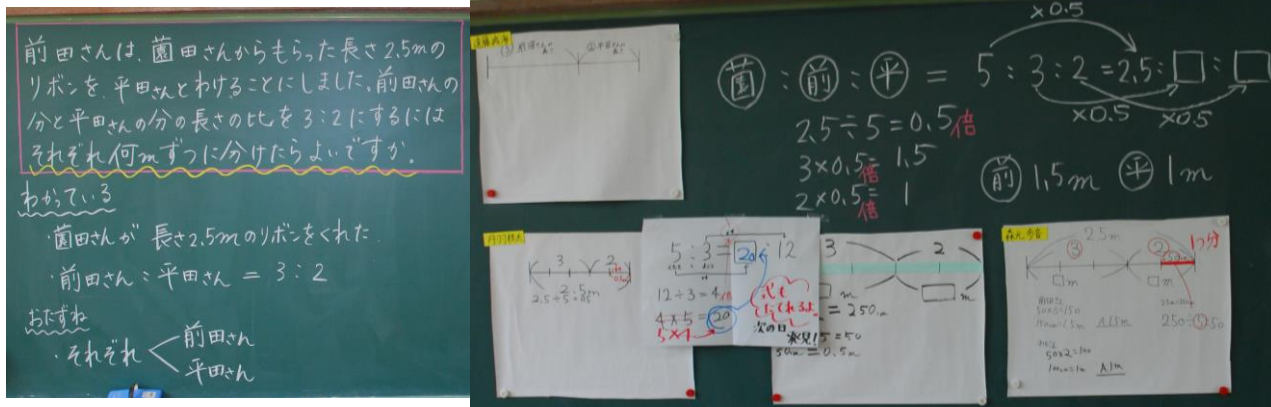 前田さんは、薗田さんからもらった長さ2.5mの
リボンを、平田さんとわけることにしました。前田さんの
分と平田さんの分の長さの比を3:2にするには
それぞれ何mずつに分けたらよいですか。
わかっている
・薗田さんが長さ2.5mのリボンをくれた
・前田さん:平田さん = 3:2
おたずね
・それぞれ
前田さん
平田さん
×0.5
薗:前:平 = 5:3:2=2.5:□:□
×0.5 ×0.5
2.5÷5=0.5倍
3×0.5倍=1.5
2×0.5倍=1
前 1.5m 平 1m
3 2
2.5m
2.5÷5=0.5
5:3=20:12
12÷3=4
4×5=20
5×4
次の日
発見!
3 2
□m □m
=250cm
5=50
50cm=0.5m
2.5m
③ ② 1つ分
□m □m
50×3=150
150cm=1.5m A1.5m
250÷⑤=50
50×2=100
100cm=1m A1m